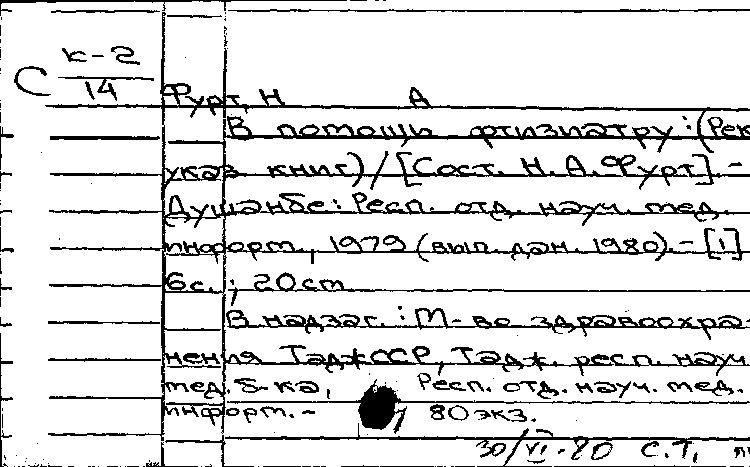 К-2
С 14
Фурт, Н А
В помощь фтизиатру: (Рек
указ книг) / [Сост. Н. А. Фурт]. -
Душанбе: Респ. отд. науч. мед.
информ., 1979 (вып. дан. 1980). - [1]
6с.; 20см
В надзаг.: М-во здравоохра-
нения ТаджССР, Тадж. респ. науч
мед. б-ка, Респ. отд. науч. мед.
информ. - , 80экз.
30/VI-80 С.Т.